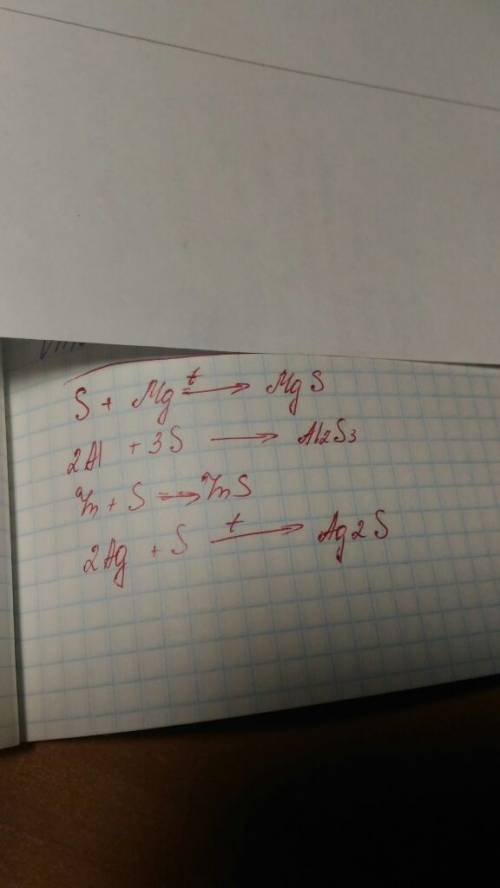 S + Mg t→ MgS
2Al + 3S → Al2S3
Zn + S → ZnS
2Ag + S t→ Ag2S